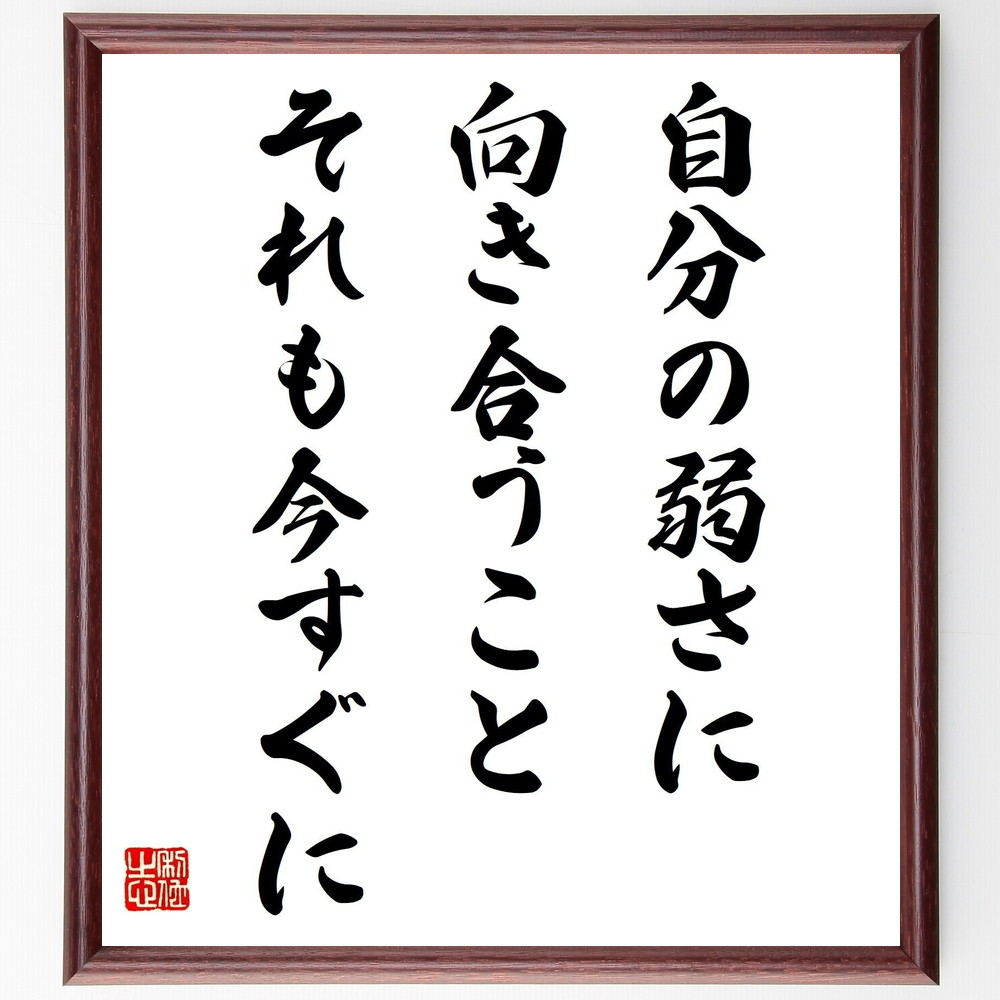 自分の弱さに
向き合うこと
それも今すぐに